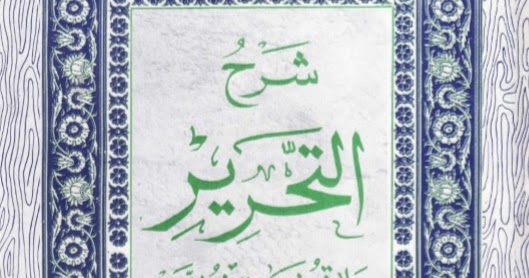 شَرْحُ
التَّحْرِيْرِ